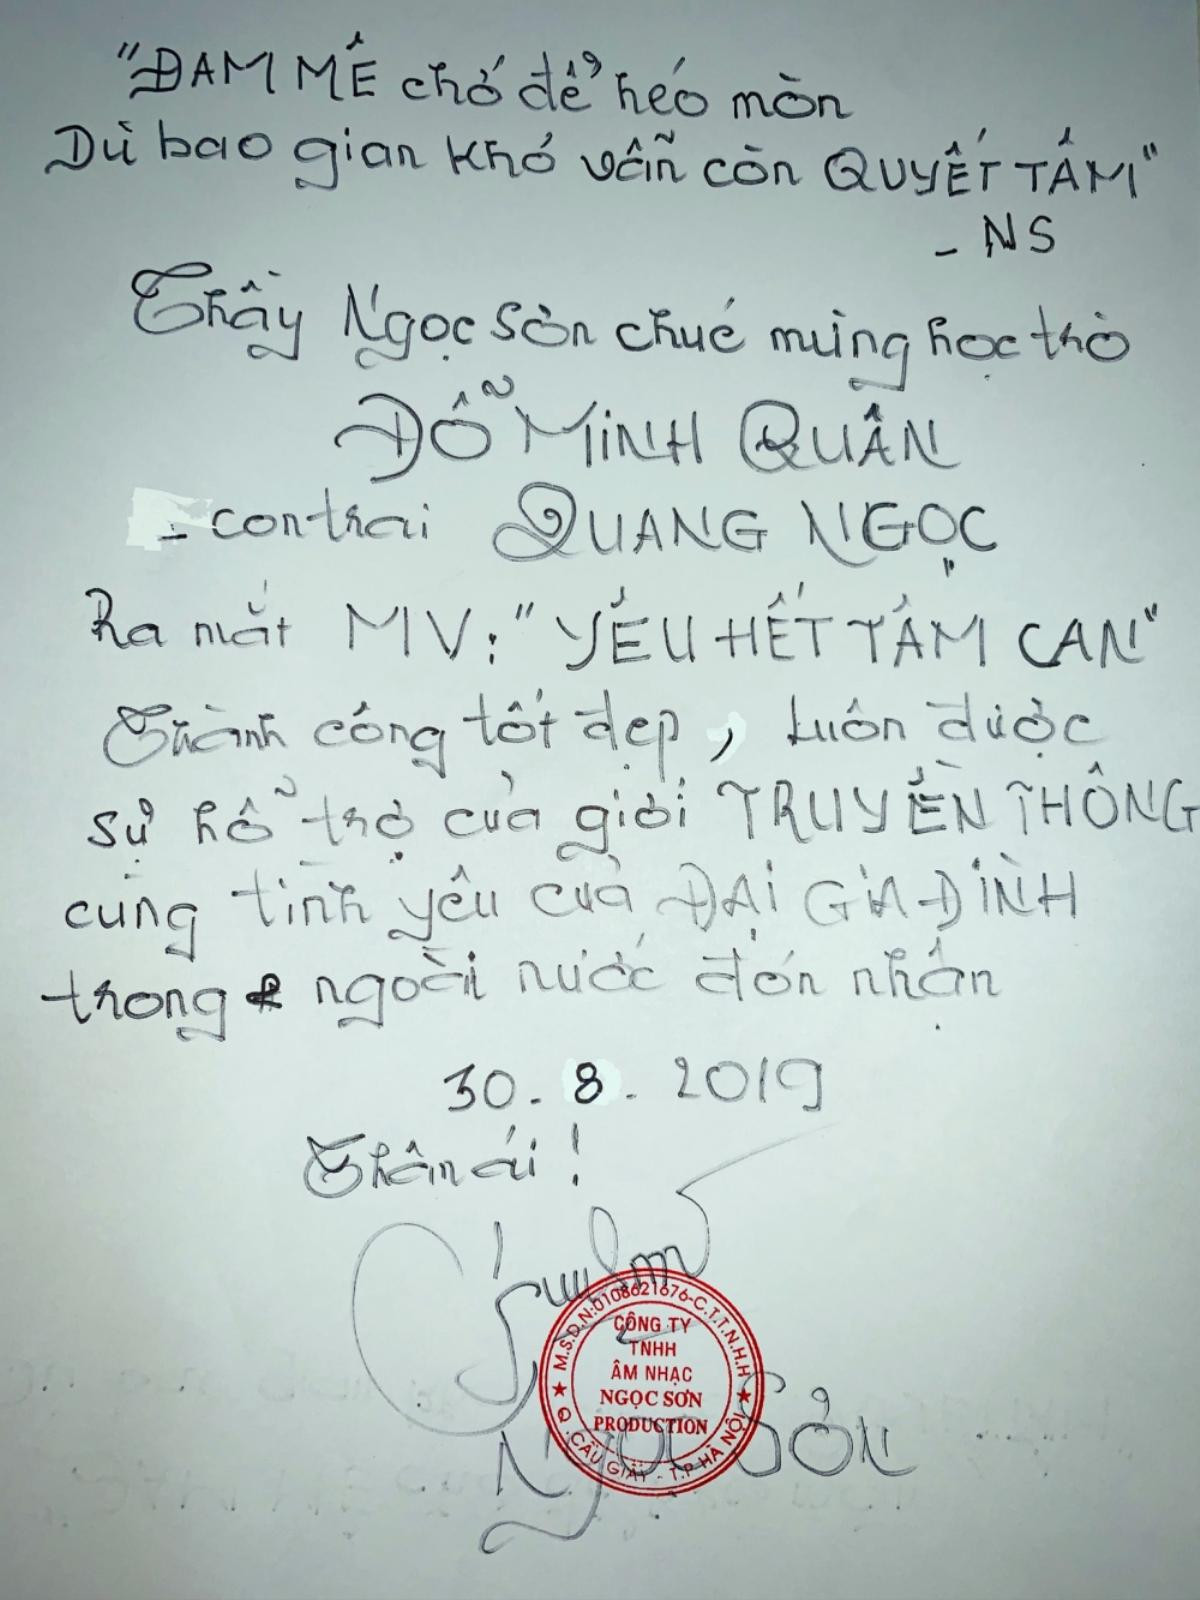 "ĐAM MÊ chớ để héo mòn
Dù bao gian khó vẫn còn QUYẾT TÂM"
- NS
Thầy Ngọc Sơn chúc mừng học trò
ĐỖ MINH QUÂN
- con trai QUANG NGỌC
Ra mắt MV: "YÊU HẾT TÂM CAN"
Thành công tốt đẹp, luôn được
sự hỗ trợ của giới TRUYỀN THÔNG
cùng tình yêu của ĐẠI GIA ĐÌNH
trong & ngoài nước đón nhận
30. 8. 2019
Thân ái!
M.S.D.N:0108621676-C.T.T.N.H.H
CÔNG TY
TNHH
ÂM NHẠC
NGỌC SƠN
PRODUCTION
Q. CẦU GIẤY - T.P HÀ NỘI
Ngọc Sơn